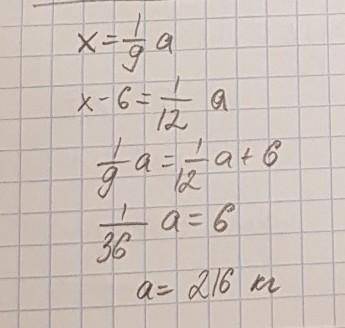 x = 1/9 a
x - 6 = 1/12 a
1/9 a = 1/12 a + 6
1/36 a = 6
a = 216 кг